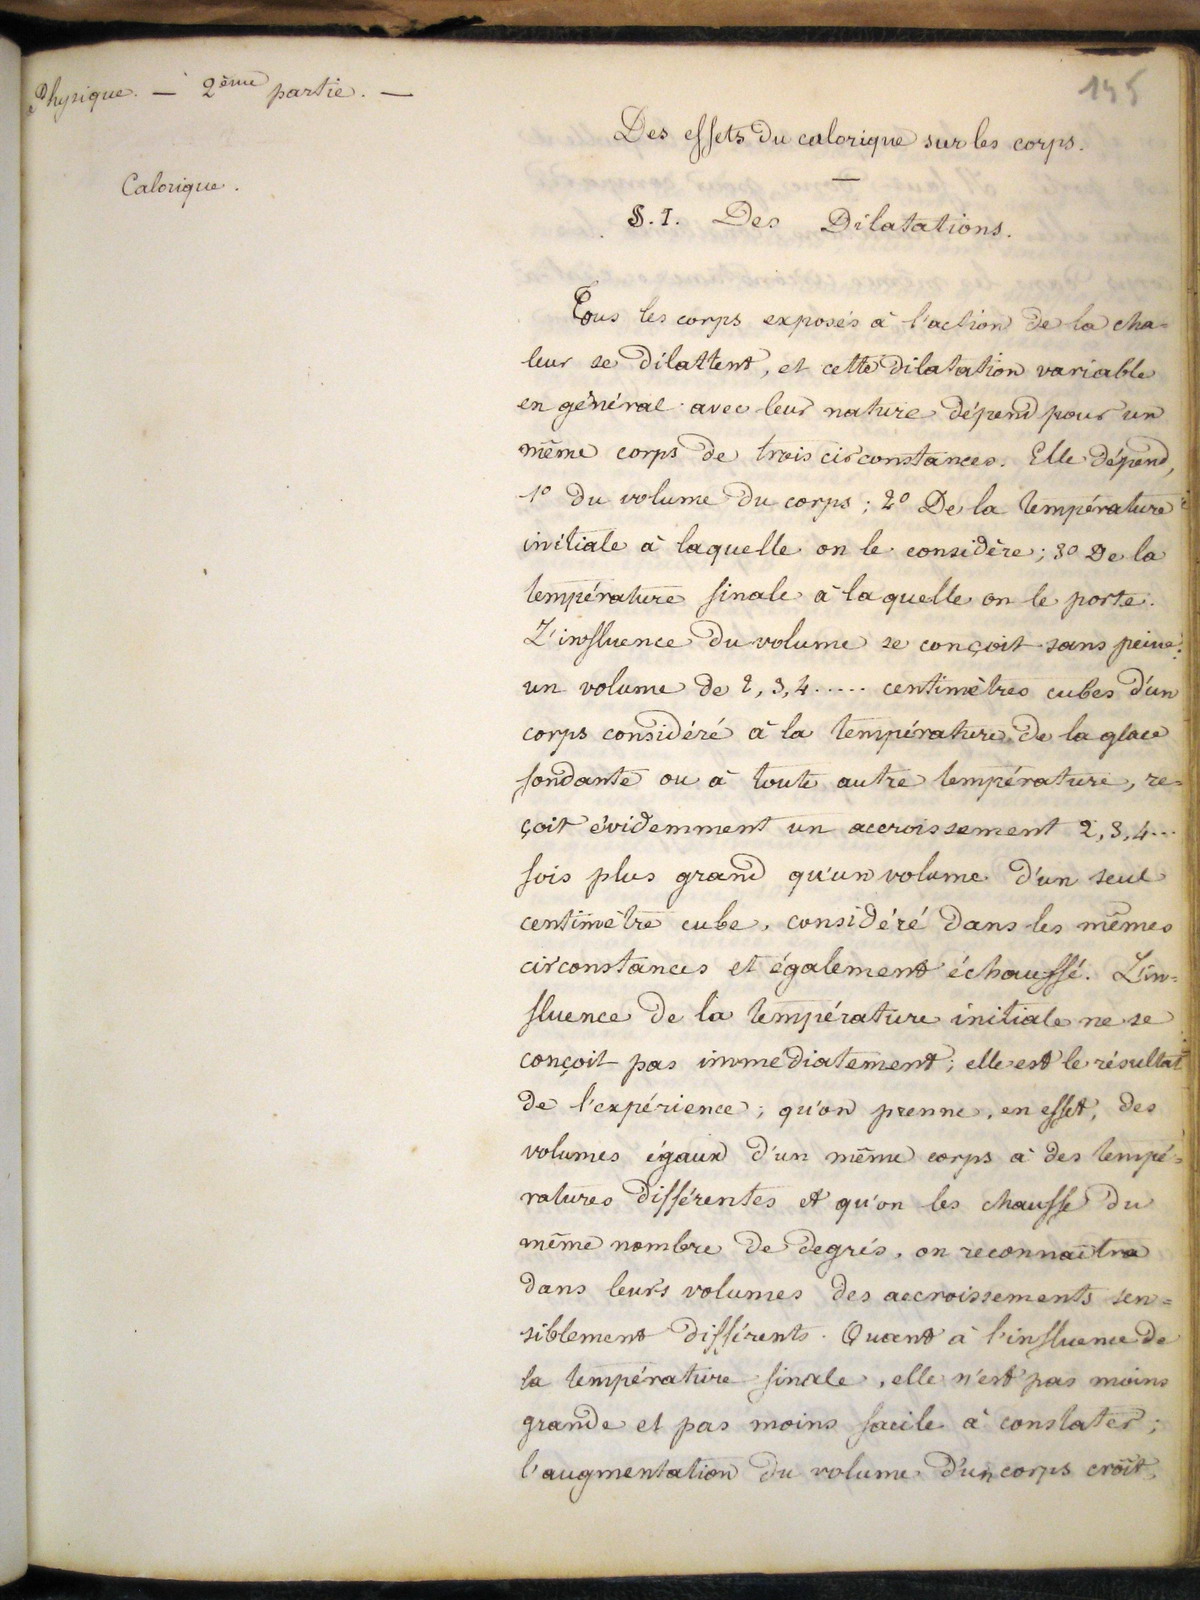 Physique. — 2ème partie. —
145
Calorique.
Des effets du calorique sur les corps.
§. I. Des Dilatations.
Tous les corps exposés à l'action de la cha=
leur se dilattent, et cette dilatation variable
en général avec leur nature dépend pour un
même corps de trois circonstances. Elle dépend,
1º du volume du corps ; 2º De la température
initiale à laquelle on le considère ; 3º De la
température finale à laquelle on le porte.
L'influence du volume se conçoit sans peine :
un volume de 2, 3, 4..... centimètres cubes d'un
corps considéré à la température de la glace
fondante ou à toute autre température, re=
çoit évidemment un accroissement 2, 3, 4...
fois plus grand qu'un volume d'un seul
centimètre cube, considéré dans les mêmes
circonstances et également échauffé. L'in=
fluence de la température initiale ne se
conçoit pas immédiatement ; elle est le résultat
de l'expérience ; qu'on prenne, en effet, des
volumes égaux d'un même corps à des tempé=
ratures différentes et qu'on les chauffe du
même nombre de degrés, on reconnaîtra
dans leurs volumes des accroissements sen=
siblement différents. Quant à l'influence de
la température finale, elle n'est pas moins
grande et pas moins facile à constater ;
l'augmentation du volume d'un corps croît,